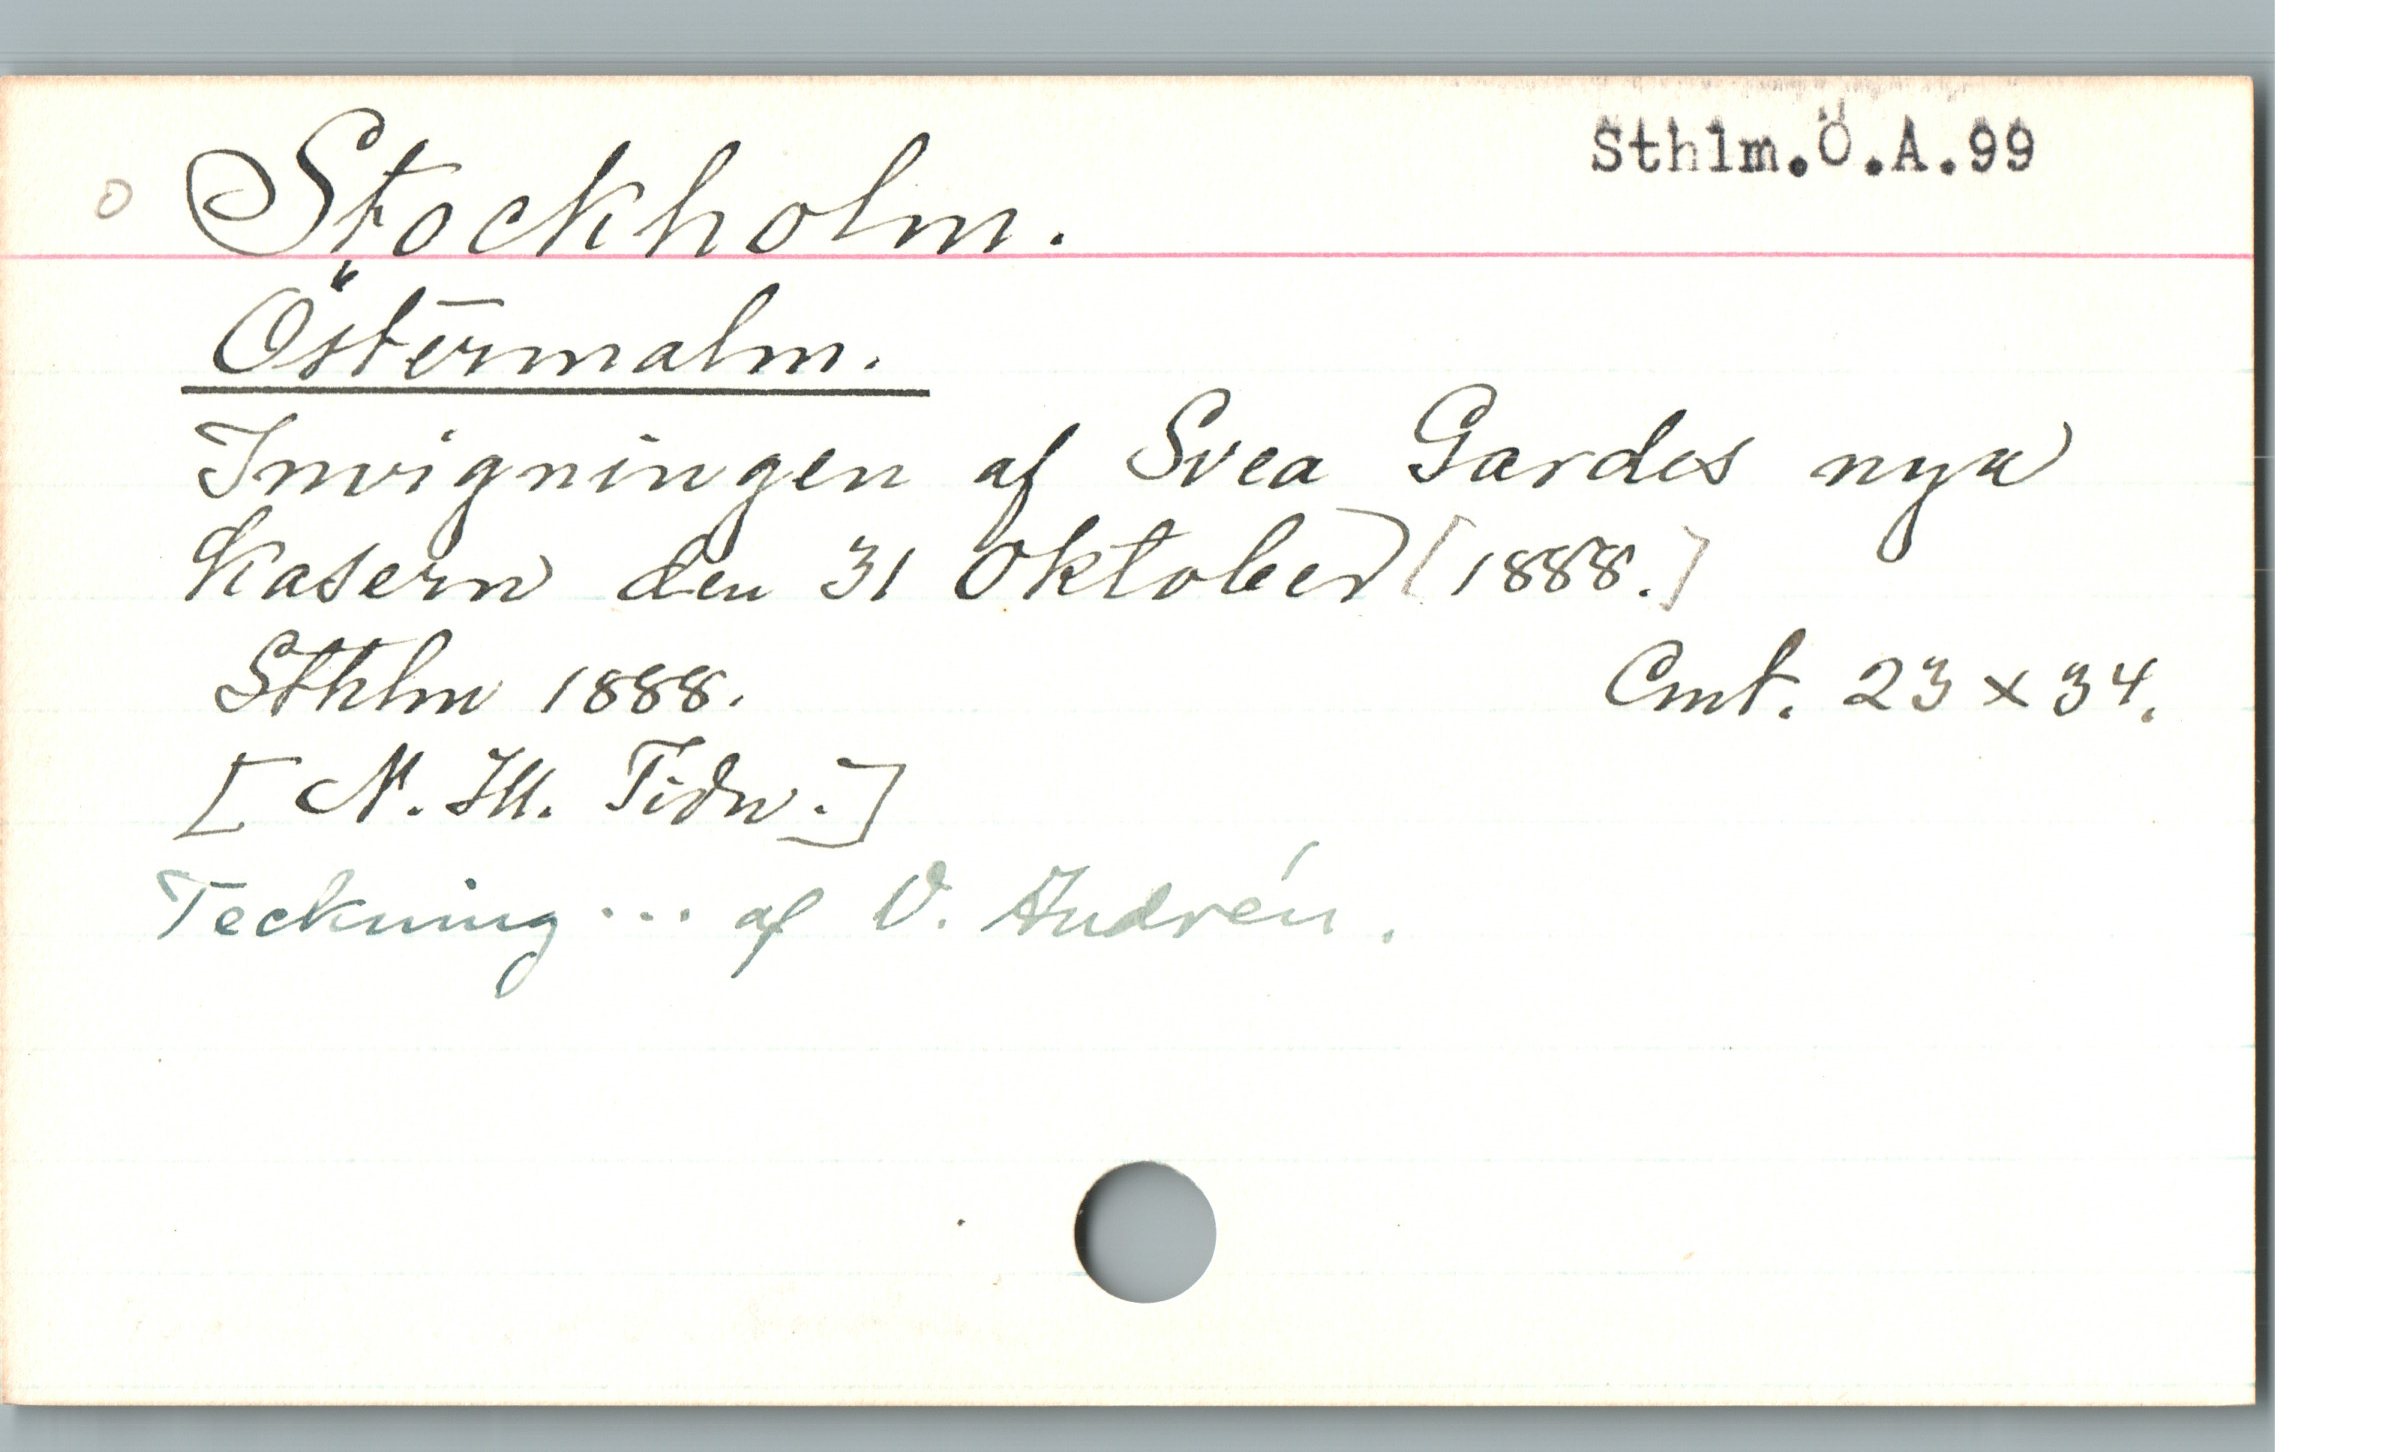 o Stockholm. Sthlm.Ö.A.99
Östermalm.
Invigningen af Svea Gardes nya
kasern den 31 Oktober [1888.]
Sthlm 1888. Cmt. 23 x 34.
[N. Ill. Tidn.]
Teckning ... af V. Andrén.